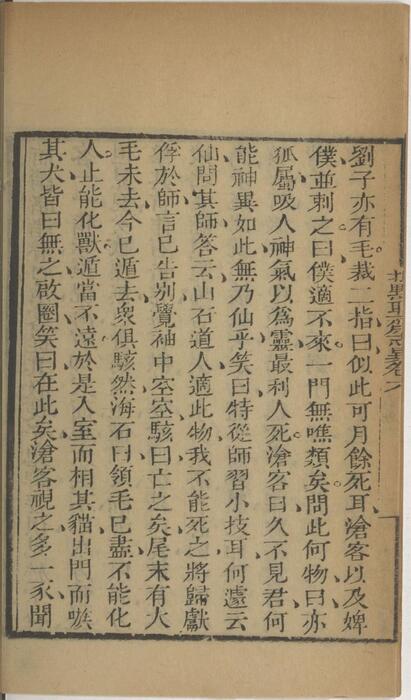 劉子亦有毛裁二指曰似此可月餘死耳滄客以及婢
僕並刺之曰僕適不來一門無噍類矣問此何物曰亦
狐屬吸人神氣以為靈最利人死滄客曰久不見君何
能神異如此無乃仙乎笑曰特從師習小技耳何遽云
仙問其師答云山石道人適此物我不能死之將歸獻
俘於師言已告別覺袖中空空駭曰亡之矣尾末有大
毛未去今已遁去衆俱駭然海石曰領毛已盡不能化
人止能化獸遁當不遠於是入室而相其貓出門而嗾
其犬皆曰無之啟圈笑曰在此矣滄客視之多一豕聞